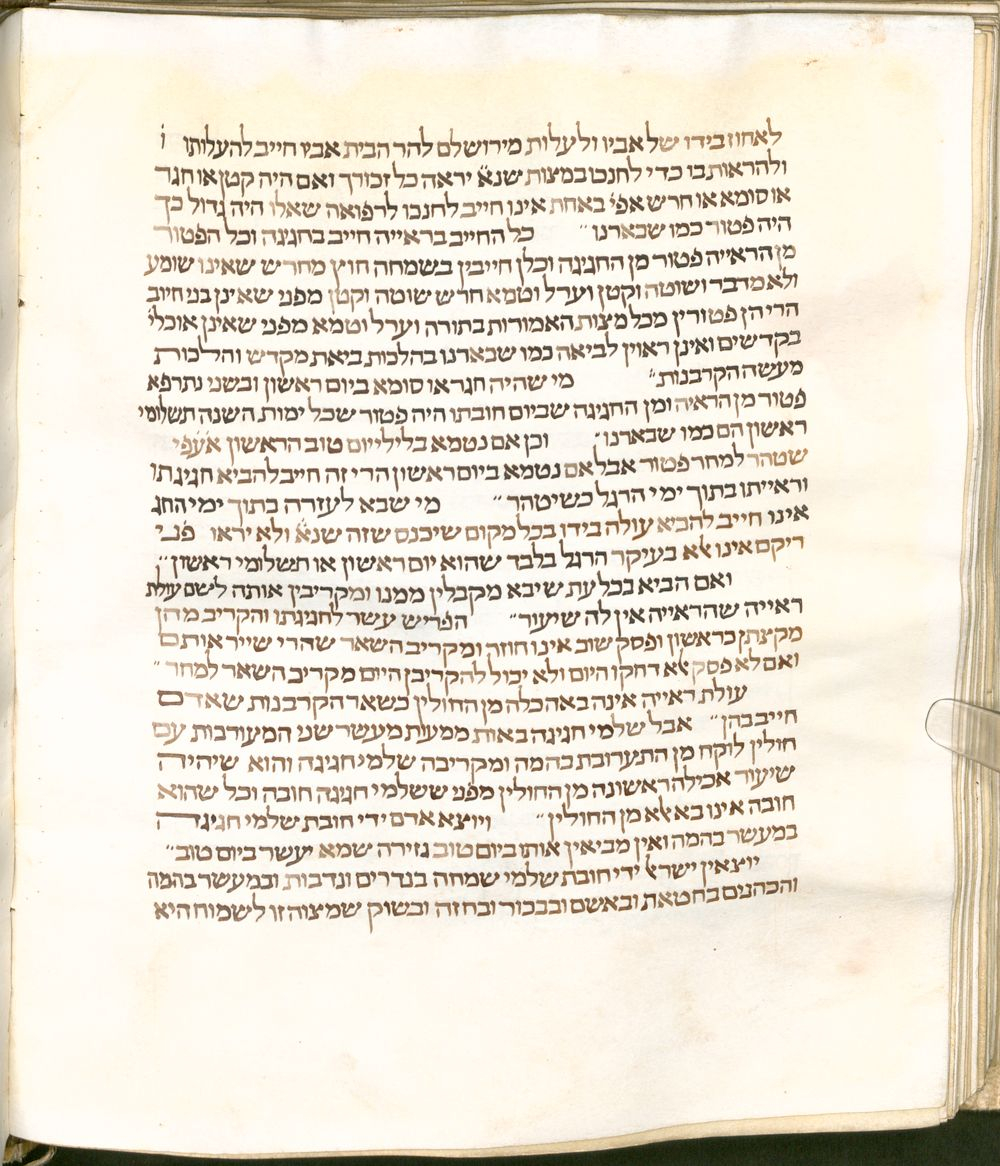 לאחוז בידו של אביו ולעלות מירושלם להר הבית אביו חייב להעלותו ו
ולהראות בו כדי לחנכו במצות שנא׳ יראה כל זכורך ואם היה קטן או חגר
או סומא או חרש אפי׳ באחת אינו חייב לחנכו לרפואה שאלו היה גדול כך
היה פטור כמו שבארנו״ כל החייב בראייה חייב בחגיגה וכל הפטור
מן הראייה פטור מן החגיגה וכלן חייבין בשמחה חוץ מחרש שאינו שומע
ולא מדבר ושוטה וקטן וערל וטמא חרש שוטה וקטן מפני שאינן בני חיוב
הרי הן פטורין מכל מצות האמורות בתורה וערל וטמא מפני שאינן אוכלי׳
בקדשים ואינן ראוין לביאה כמו שבארנו בהלכות ביאת מקדש והלכות
מעשה הקרבנות״ מי שהיה חגר או סומא ביום ראשון ובשני נתרפא
פטור מן הראיה ומן החגיגה שביום חובתו היה פטור שכל ימות השנה תשלומי
ראשון הם כמו שבארנו״ וכן אם נטמא בלילי יום טוב הראשון אעפי
שטהר למחר פטור אבל אם נטמא ביום ראשון הרי זה חייב להביא חגיגתו
וראייתו בתוך ימי הרגל כשיטהר״ מי שבא לעזרה בתוך ימי החג
אינו חייב להביא עולה בידו בכל מקום שיכנס שזה שנא׳ ולא יראו פני
ריקם אינו אלא בעיקר הרגל בלבד שהוא יום ראשון או תשלומי ראשון״
ואם הביא בכל עת שיבא מקבלין ממנו ומקריבין אותה לשם עולת
ראייה שהראייה אין לה שיעור״ הפריש עשר לחגיגתו והקריב מהן
מקצתן בראשון ופסק שוב אינו חוזה ומקריב השאר שהרי שייר אותם
ואם לא פסק אלא דחקו היום ולא יכול להקריבן היום מקריב השאר למחר״
עולת ראייה אינה באה כלה מן החולין כשאר הקרבנות שאדם
חייב בהן״ אבל שלמי חגיגה באות ממעות מעשר שני המעורבות עם
חולין לוקח מן התערובת בהמה ומקריבה שלמי חגיגה והוא שיהיה
שיעור אכילה ראשונה מן החולין מפני ששלמי חגיגה חובה וכל שהוא
חובה אינו בא אלא מן החולין״ ויוצא אדם ידי חובת שלמי חגיגה
במעשר בהמה ואין מביאין אותו ביום טוב גזירה שמא יעשר ביום טוב״
יוצאין ישראל ידי חובת שלמי שמחה בנדרים ונדבות ובמעשר בהמה
והכהנים בחטאת ובאשם ובבכור ובחזה ובשוק שמצוה זו לשמוח היא